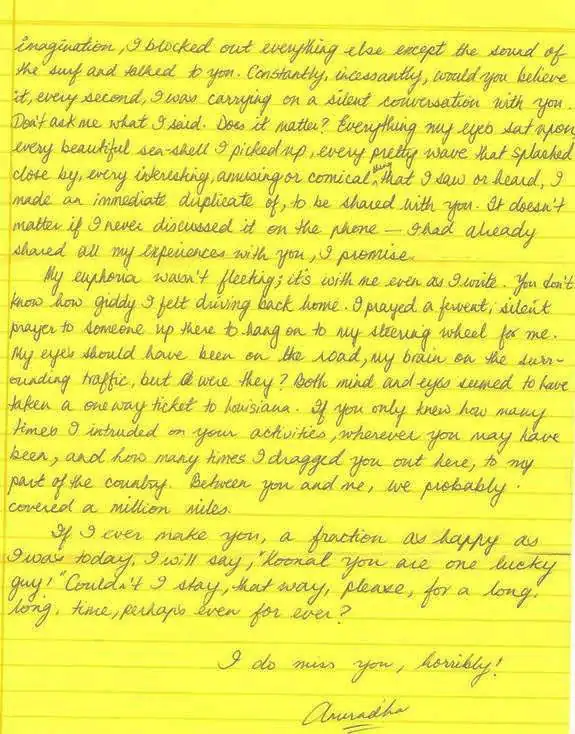 imagination, I blocked out everything else except the sound of
the surf and talked to you. Constantly, incessantly, would you believe
it, every second, I was carrying on a silent conversation with you.
Don't ask me what I said. Does it matter? Everything my eyes sat upon
every beautiful sea-shell I picked up, every pretty wave that splashed
close by, every interesting, amusing or comical thing that I saw or heard, I
made an immediate duplicate of, to be shared with you. It doesn't
matter if I never discussed it on the phone — I had already
shared all my experiences with you, I promise.
My euphoria wasn't fleeting; it's with me even as I write. You don't
know how giddy I felt driving back home. I prayed a fervent, silent
prayer to someone up there to hang on to my steering wheel for me.
My eyes should have been on the road, my brain on the surr-
ounding traffic, but were they? Both mind and eyes seemed to have
taken a one way ticket to Louisiana. If you only knew how many
times I intruded on your activities, wherever you may have
been, and how many times I dragged you out here, to my
part of the country. Between you and me, we probably
covered a million miles.
If I ever make you, a fraction as happy as
I was today, I will say, "Koonal you are one lucky
guy!" Couldn't I stay, that way, please, for a long,
long, time, perhaps even for ever?
I do miss you, horribly!
Anuradha